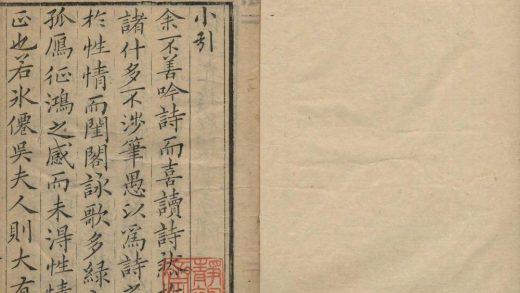 小引
余不善吟詩而喜讀詩然
諸什多不涉筆愚以爲詩
扵性情而閨閣詠歌多緣
孤鴈征鴻之感而未淂性情
正也若氷僊吳夫人則大有